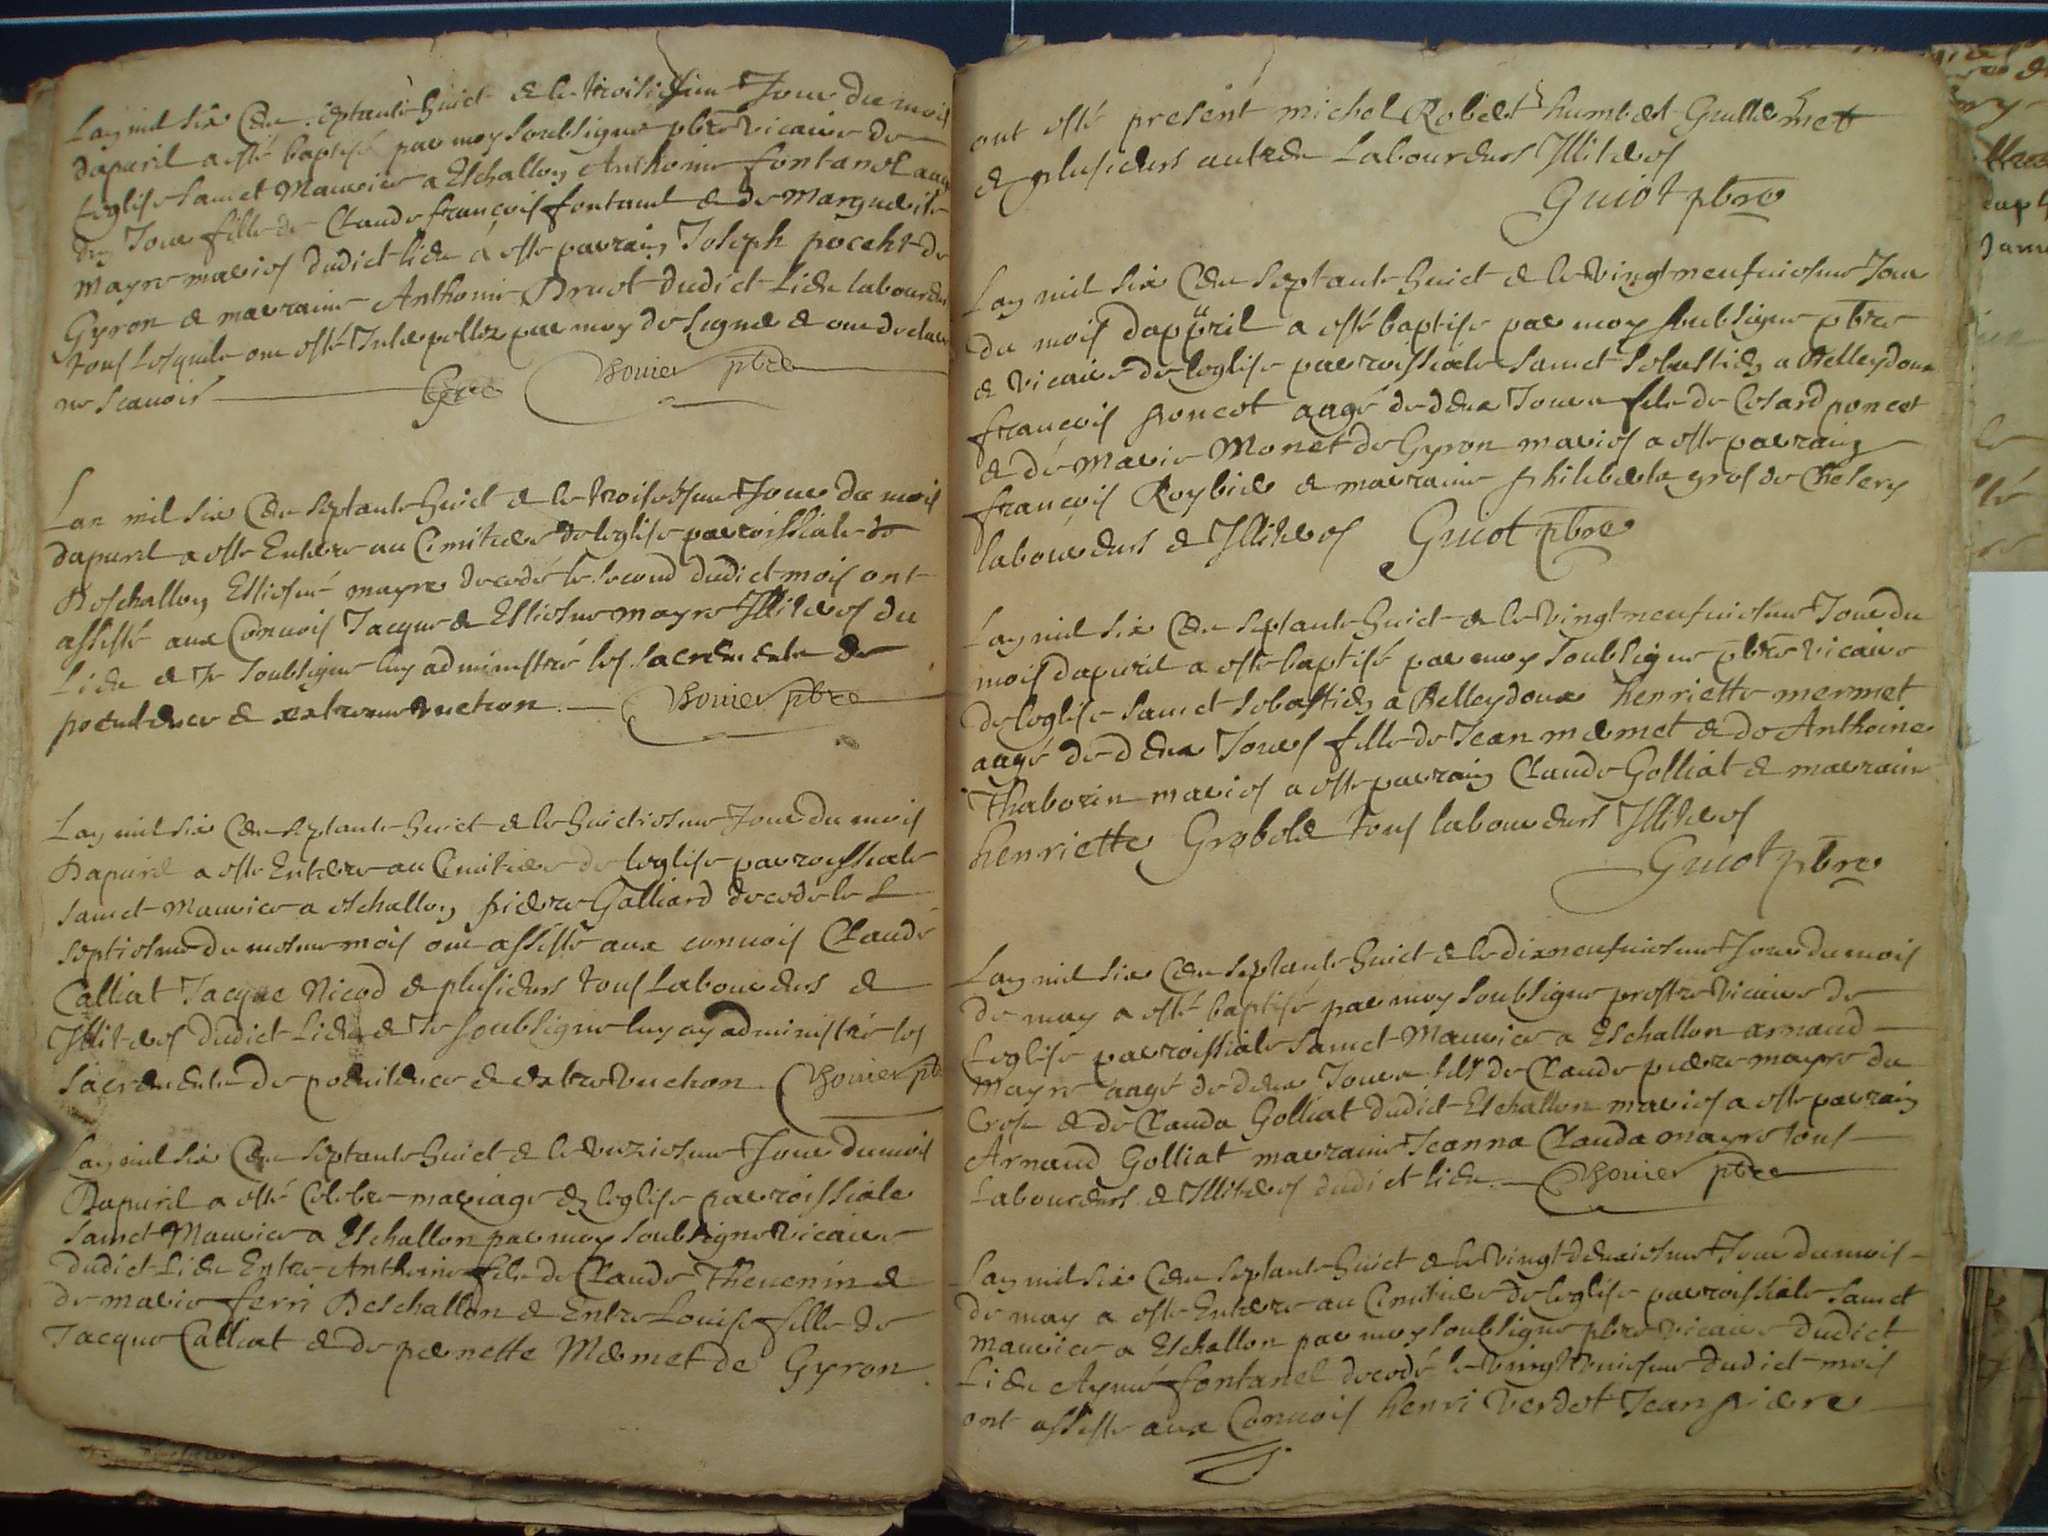 Lan mil six Cens septante huict & le troisiesme Jour du mois
dapuril a esté baptisé par moy soubsigne pbre vicaire de
leglise sainct Mauvice a Eschallon Anthoine fontanel aagé
dun Jour fille de Claude françois fontanel & de Marguerite
mayre mariés dudict lieu a este parrain Joseph poceht de
Gyron & marraine Anthoine Druot dudict Lieu laboureurs
tous lesquels ont esté Interpellez par moy de signer & ont declare
ne scauoir Grec Thouier pbre
Lan mil six Cens septante huict & le troisiesme Jour du mois
dapuril a este Enterre au Cimitiere de leglise parroissiale de
Deschallon Estienne mayre decedé le second dudict mois ont
assisté aux Conuois Jacque & Estienne mayre Illiteres du
Lieu & Je soubsigne luy administré les sacrements de
penitence & extreme unction. Thouier pbre
Lan mil six Cens septante huict & le huictiesme Jour du mois
Dapuril a este Enterre au Cimitiere de leglise parroissiale
sainct Mauvice a eschallon pierre Galliard decede le
septiesme du mesme mois ont assisté aux conuois Claude
Calliat Jacque Nicod & plusieurs tous Laboureurs &
Illiteres dudict Lieu & Je soubsigne luy ay administré les
sacrements de penitence & extre unction Thouier pbre
Lan mil six Cens septante huict & le unziesme Jour du mois
Dapuril a esté Celebre mariage en leglise parroissiale
sainct Mauvice a Eschallon par moy soubsigne vicaire
dudict Lieu Entre Anthoine fils de Claude Theuenin &
de marie ferri Deschallon & Entre Louise fille de
Jacque Calliat & de pernette Mermet de Gyron.
ont esté present michel Robert humbert Guillermet
& plusieurs autres Laboureurs Illiteres
Guiot pbre
Lan mil six Cens septante huict & le vingt neufuiesme Jour
du mois dapuril a esté baptise par moy soubsigne pbre
& vicaire de leglise parroissiale sainct sebastien a Belleydoux
françois poncet aagé de deux Jours fils de Cesard poncet
& dé Marie Monet de Gyron mariés a este parrain
françois Roybier & marraine philiberte gros de Chesery
laboureurs & Illiteres Guiot pbre
Lan mil six Cens septante huict & le vingt neufuiesme Jour du
mois dapuril a este baptisé par moy soubsigne pbre vicaire
de leglise sainct sebastien a Belleydoux henriette mermet
aagé de deux Jours fille de Jean mermet & de Anthoine
Thaborin mariés a este parrain Claude Golliat & marraine
henriette Grobold tous laboureurs Illiteres
Guiot pbre
Lan mil six Cens septante huict & le dixneufuiesme Jour du mois
de may a esté baptisé par moy soubsigne prestre vicaire de
Leglise parroissiale sainct Mauvice a Eschallon arnaud
Mayre aagé de deux Jours fils de Claude pierre mayre du
Crose & de Clauda Golliat dudict Eschallon mariés a este parrain
Arnaud Golliat marraine Jeanna Clauda mayre tous
Laboureurs & Illiteres dudict lieu. Thouier pbre
Lan mil six Cens septante huict & le vingt deuxiesme Jour du mois
de may a este Enterre au Cimitiere de leglise parroissiale sainct
mauvice a Eschallon par moy soubsigne pbre vicaire dudict
Lieu Aymé fontanel decedé le vingt uniesme dudict mois
ont assiste aux Conuois henri Verdet Jean pierre